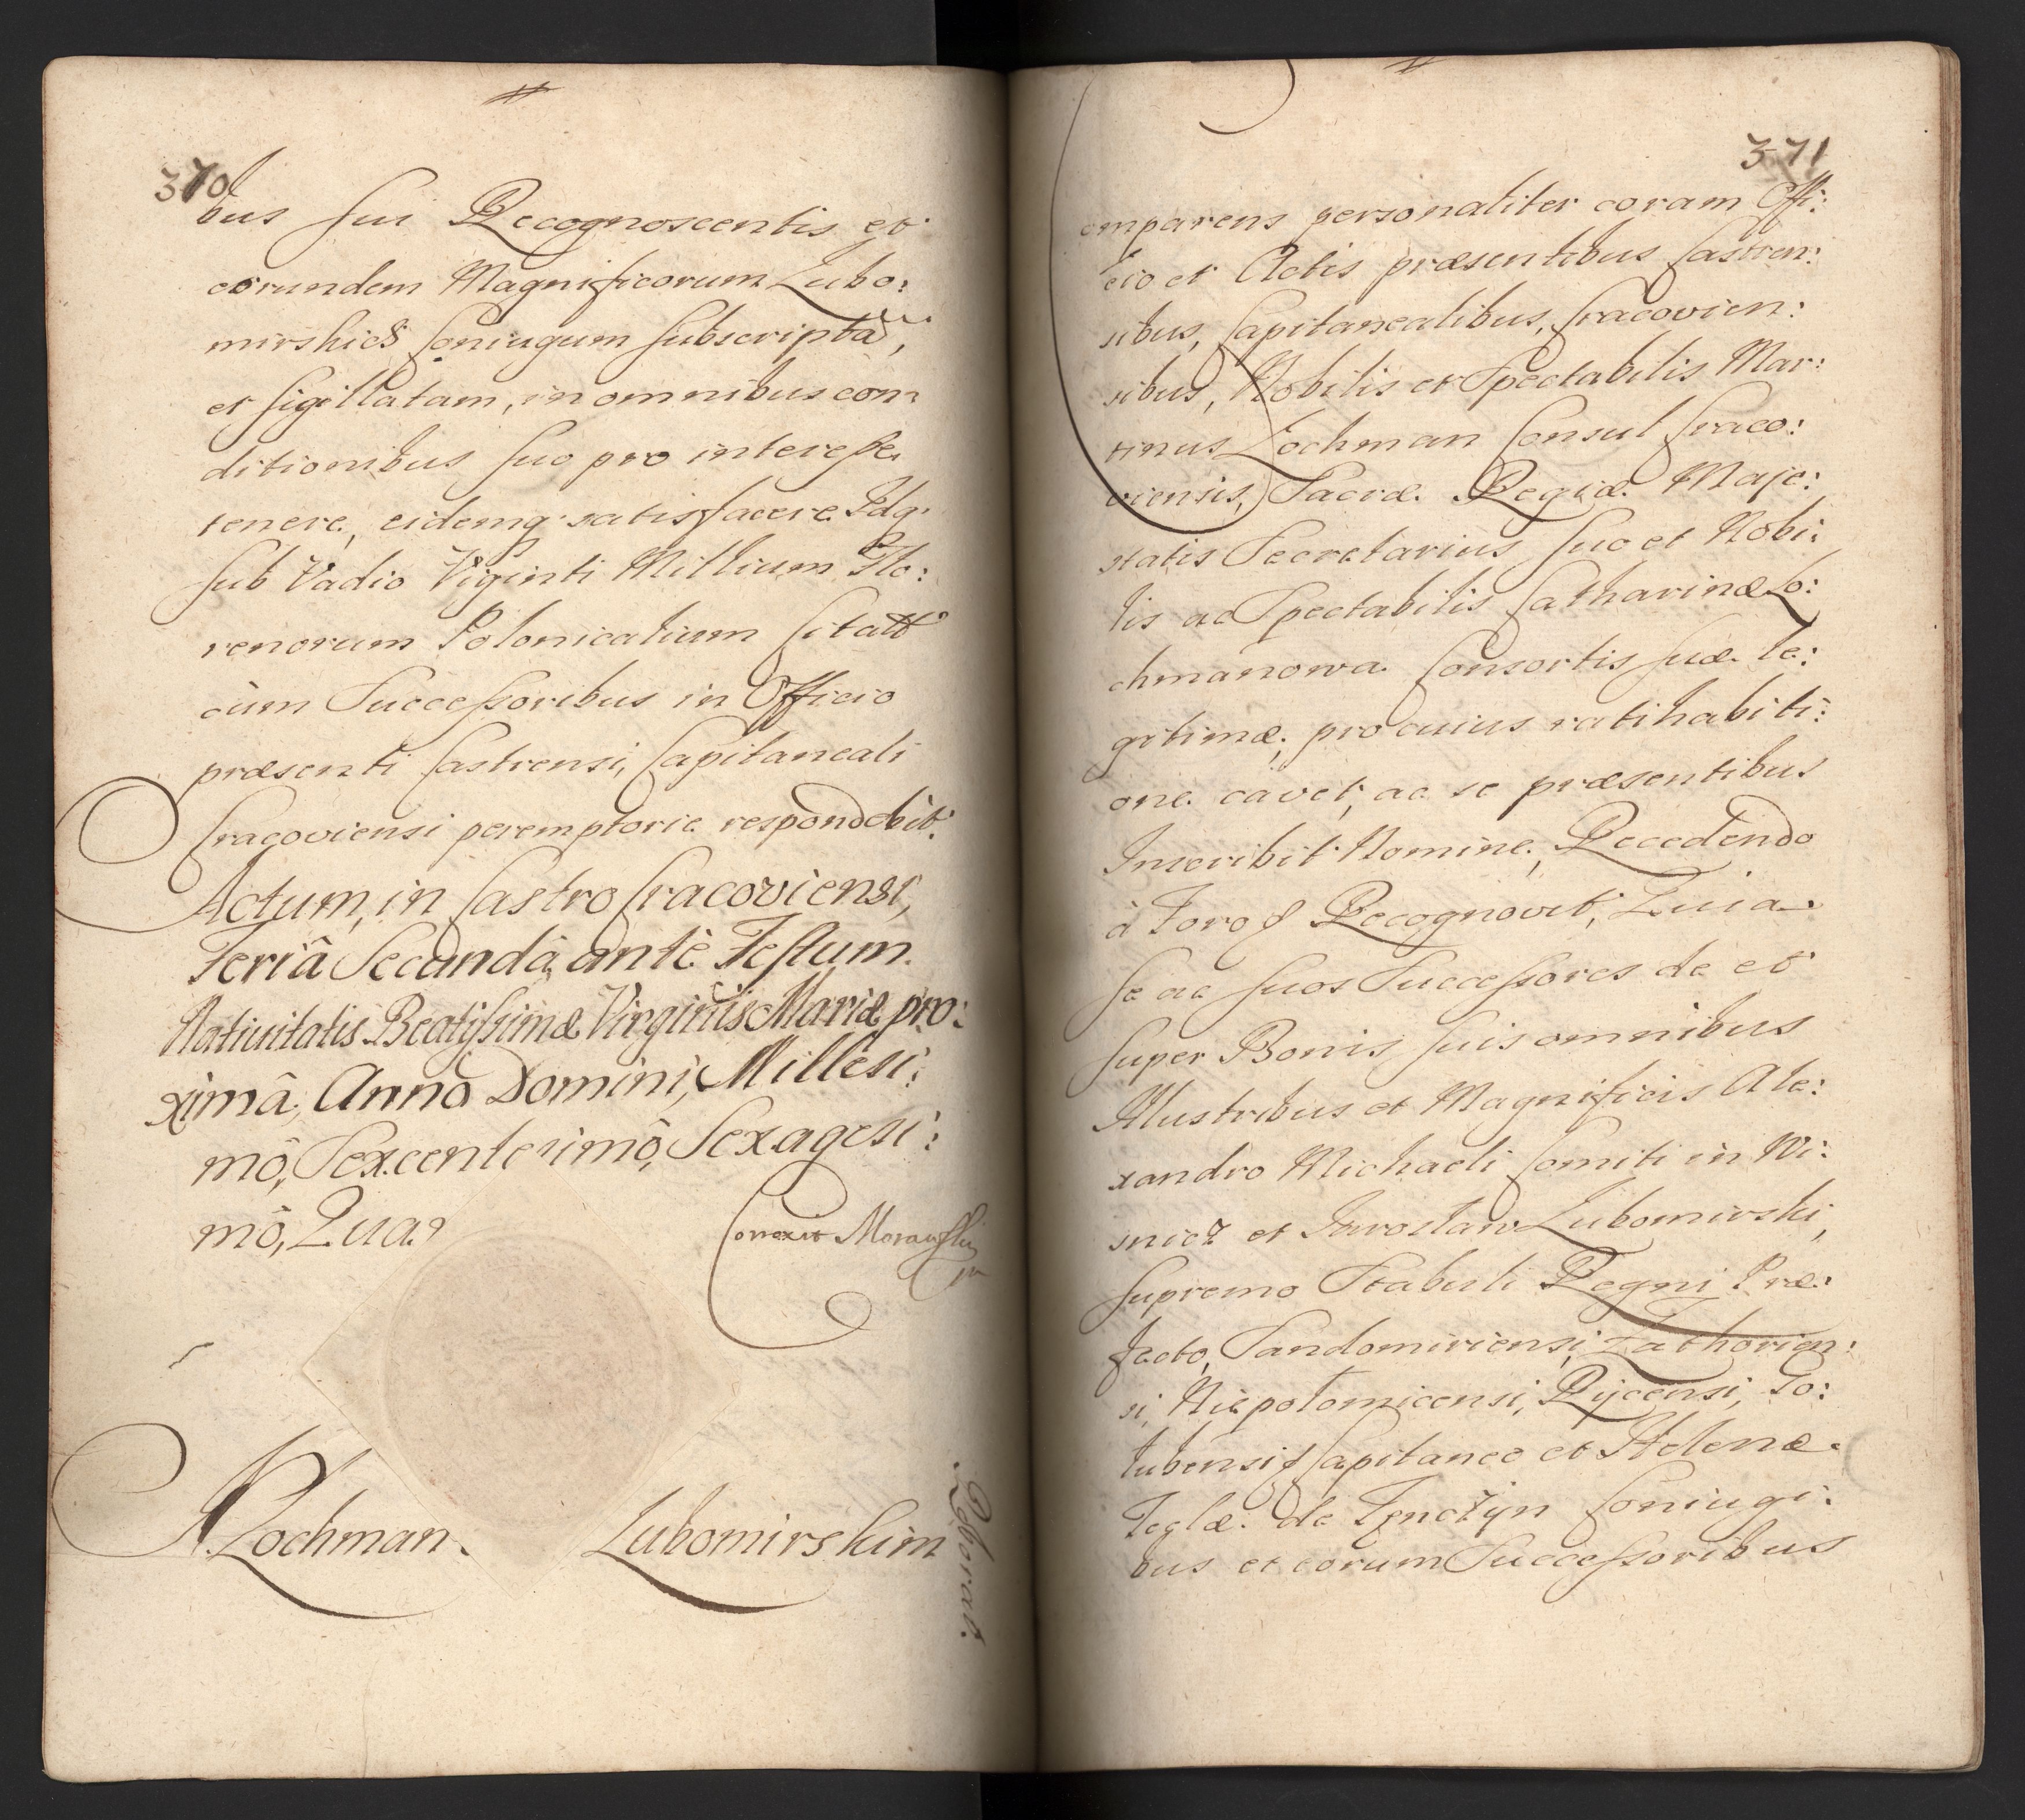 370
bus sui Recognoscentis et
eorundem Magnificorum Lubo:
mirskich Coniugum subscriptã,
et sigillatam, in omnibus con:
ditionibus suo pro interesse
tenere, eidemq. satisfacere Idq.
sub Vadio Viginti Millium Flo:
renorum Polonicalium
cum Successoribus in Officio
præsenti Castrensi, Capitaneali
Cracoviensi peremptorie respondebit.
Actum, in Castro Cracoviensi,
Feriâ Secundâ antè Festum
Natiuitatis Beatissimæ Virginis Mariæ pro:
ximâ, Annô Domini, Millesi:
mô, Sexcentesimô, Sexagesi:
mô, Quar
Correxit Morawski
mp
Lochman
Lubomirskim
371
omparens personaliter coram Offi:
cio et Actis præsentibus Castren:
sibus, Capitanealibus, Cracovien:
sibus, Nobilis et Spectabilis Mar:
tinus Lochman Consul Craco:
viensis, Sacræ Regiæ Maje:
statis Secretarius suo et Nobi:
lis ac Spectabilis Catharinæ Lo:
chmanowa Consortis suæ le:
gitimæ, pro cuius ratihabiti:
one cavet, ac se præsentibus
Inscribit Nomine, Recedendo
à Foro Recognovit, Quia
se ac suos Successores de et
super Bonis suis omnibus
Illustribus et Magnificis Ale:
xandro Michaeli Comiti in Wi:
snicz et Jarosław Lubomirski,
supremo Stabuli Regni Præ:
fecto, Sandomiriensi, Zathorien:
si, Niepołomicensi, Rijcensi, Lo:
lubensi Capitaneo et Helenæ
Teglæ de Tęnczÿn Coniugi:
bus et eorum Successoribus